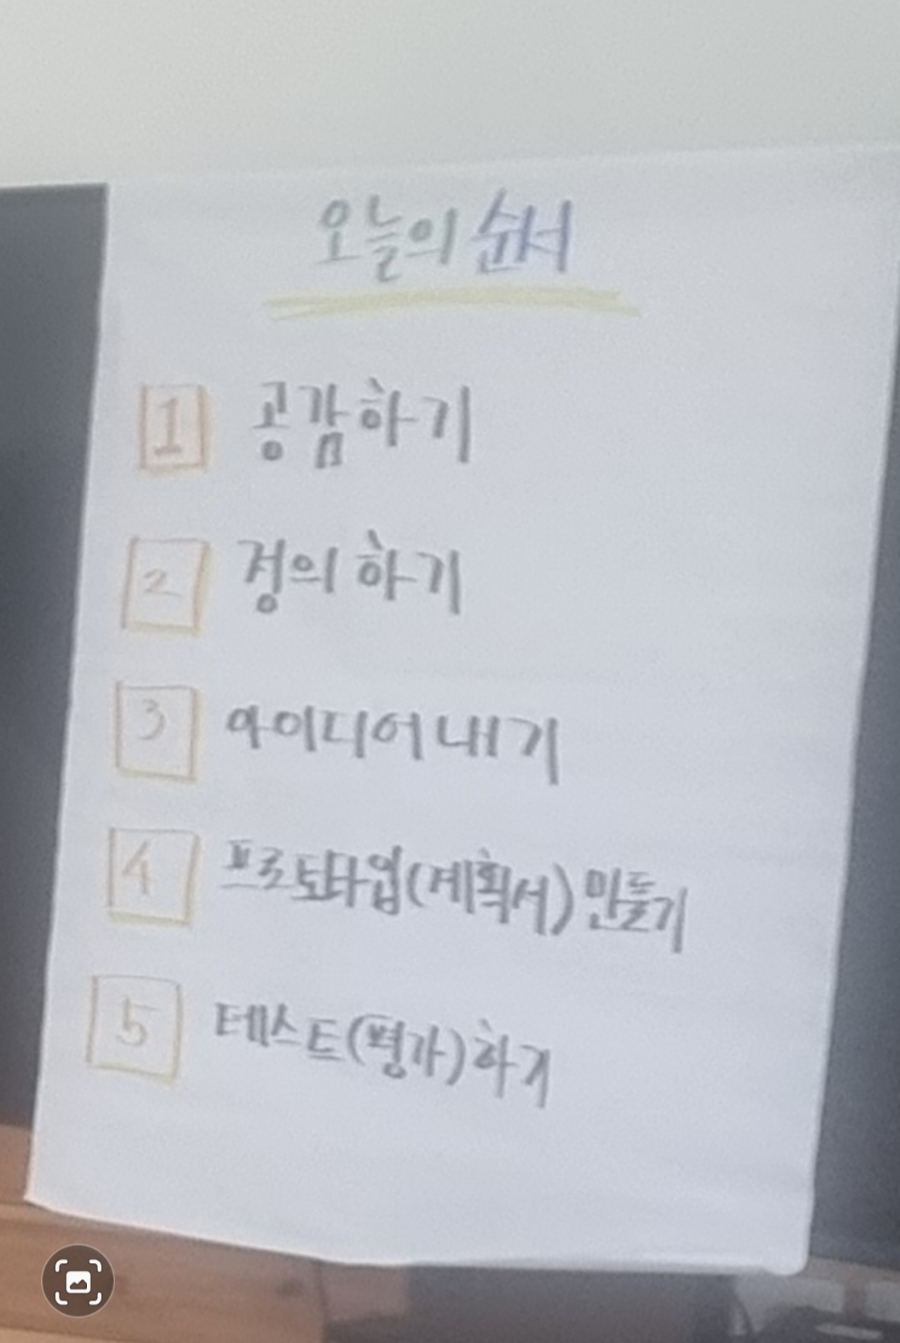 오늘의 순서
1 공감하기
2 정의하기
3 아이디어내기
4 프로토타입(계획서)만들기
5 테스트(평가)하기